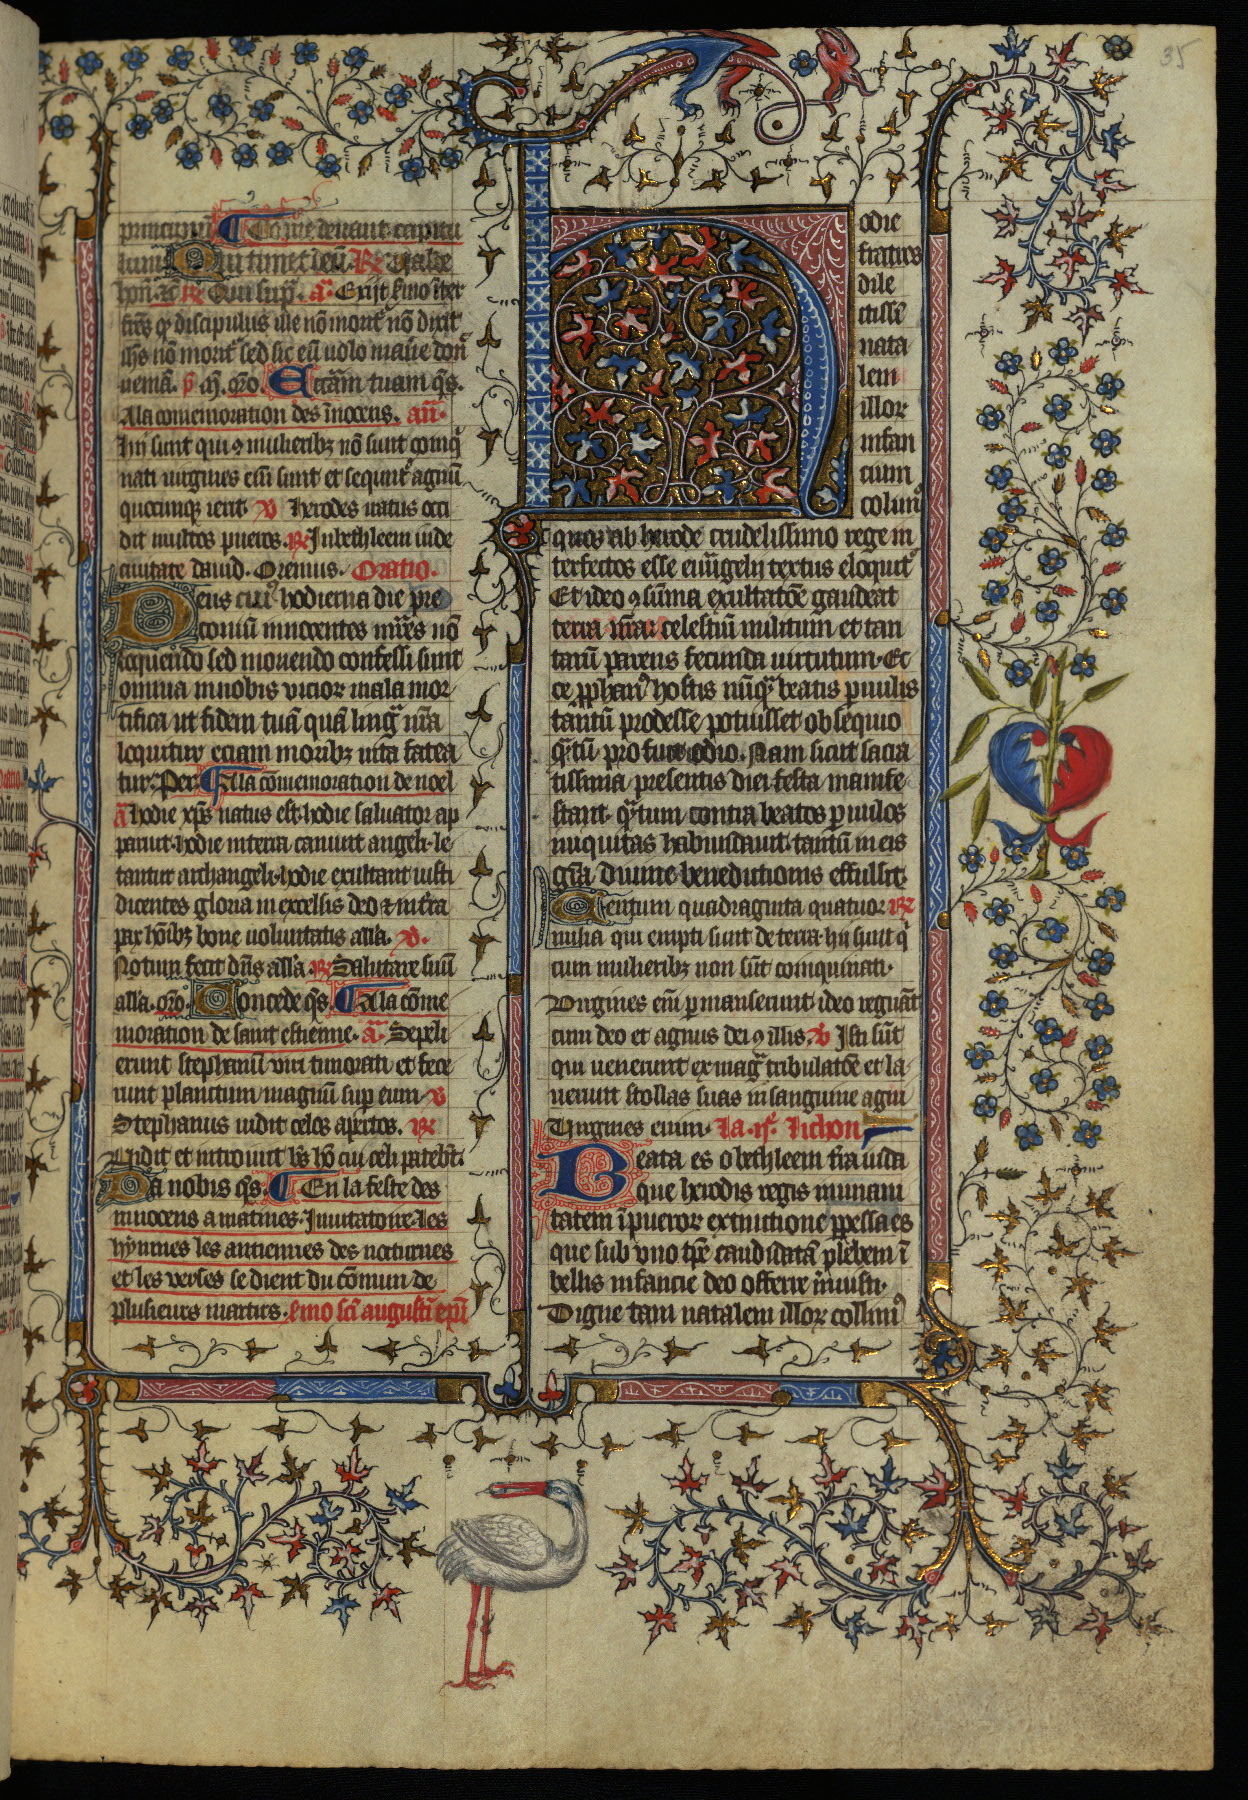 35
principiū ¶ Co pie deuant capitu
lum Qui timet deū. ℟ Ualde
hon̄. ℟ Qui sup̄. a. Exijt s̄mo int̄
frēs qͥ discipulus ille nō morit̄ nō dixit
ih̄s nō morit̄ sed sic eū uolo maūe don̄
ueniā. p̄. or̄o. Eccl̄am tuam q̄s.
A la comemoration des īnocens. an̄.
Hij sunt qui ꝯ mulierib; nō sunt coinq̄
nati uirgines em̄ sunt et sequnt̄ agnū
quocumq; ierit. V Herodes iratus occi
dit multos pueros. ℟ In bethleem iude
ciuitate dauid. Oremus. Oratio.
Deus cui9 hodierna die pre
coniū innocentes mr̄es nō
loquendo sed moriendo confessi sunt
omnia in nobis vicior mala mor
tifica ut fidem tuā quā lingᷓ nr̄a
loquitur eciam morib; uita fatea
tur. Per ¶ A la cōmemoration de noel
a hodie xp̄s natus est. hodie saluator ap
paruit. hodie in terra canunt angeli. le
tantur archangeli. hodie exultant iusti
dicentes gloria in excelsis deo & in t̄ra
pax hōib; bone uoluntatis all̄a. V.
Notum fecit dn̄s all̄a. ℟ Salutare suū
all̄a. or̄o. Concede q̄s. ¶ A la cōme
moration de saint estienne. a. Sepeli
erunt stephanū viri timorati et fece
runt planctum magnū sup eum. V
Stephanus uidit celos ap̄tos. ℟
Uidit et introiuit b̄s hō cui celi patebāt.
Da nobis q̄s. ¶ En la feste des
innocens a matines. Inuitatoire. les
hympnes les antiennes des nocturnes
et les verses se dient du cōmun de
plusieurs martirs. s̄mo sc̄i augustī ep̄i
Hodie
fratres
dile
ctissī
nata
lem
illor
infan
cium
colim9
quos ab herode crudelissimo rege in
terfectos esse euūgelij textus eloquit̄
Et ideo ꝯ sūma exultatōe gaudeat
terra nr̄ar celestiū militum et tan
tarū parens fecunda uirtutum. Ec
ce pphan9 hostis nūqᷓ beatis p̄uulis
tantū prodesse potuisset obsequio
qᷓtū profuit odio. Nam sicut sacra
tissima presentis diei festa manife
stant. qᷓtum contra beatos p̄uulos
iniquitas habundauit. tantū in eis
gr̄a diuine benedictionis effulsit.
Centum quadraginta quatuor ℟
milia qui empti sunt de terra. hij sunt qͥ
cum mulierib; non sūt coinquinati.
Uirgines em̄ p̄manserunt. ideo regnāt
cum deo et agnus dei ꝯ illis. V Isti sūt
qui uenerunt ex magᷓ tribulatōe et la
uerunt stollas suas in sanguine agni
Uirgines enim. La .ijͤ. lichon
Beata es o bethleem t̄ra iuda
que herodis regis inmani
tatem ī pueror extinctione p̄pessa es
que sub vno tp̄e candidatā plebem ī
bellis infancie deo offerre m̄uisti.
Digne tam natalem illor collim9